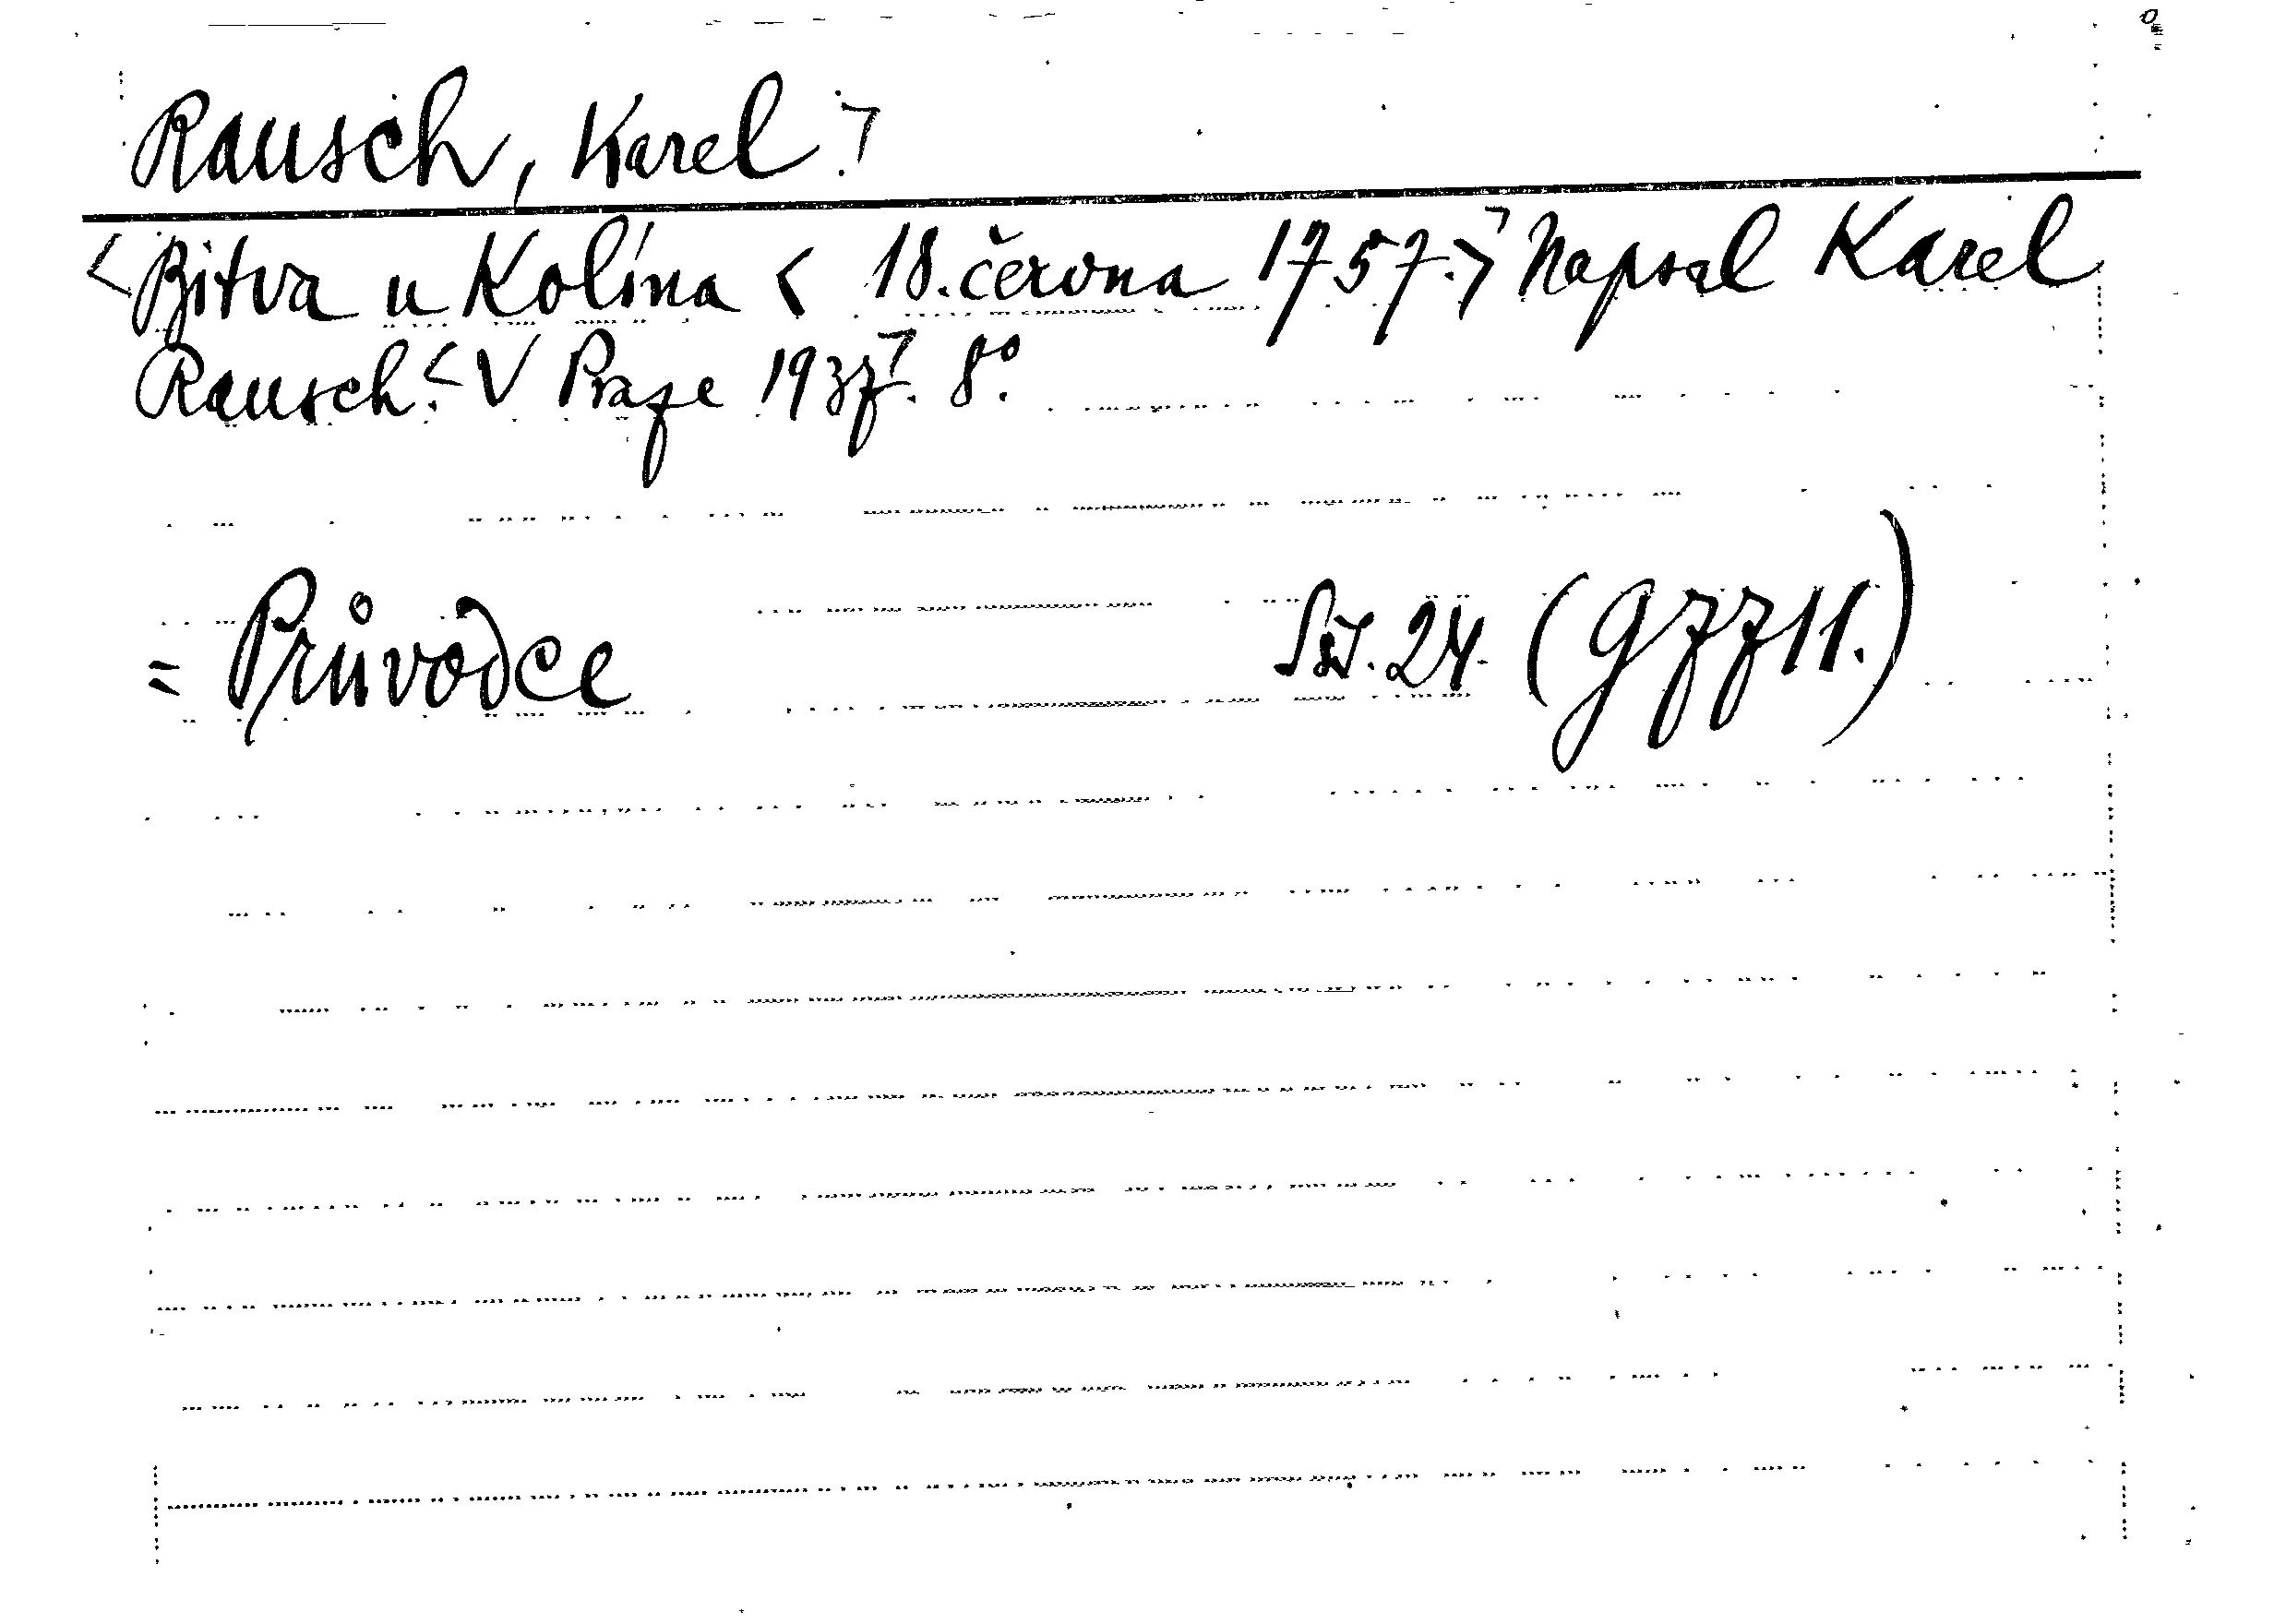 Rausch, Karel.
<Bitva u Kolína < 18. června 1757.> Napsal Karel
Rausch. < V Praze 1937. 8°.
= Průvodce 24. (g 77 11.)